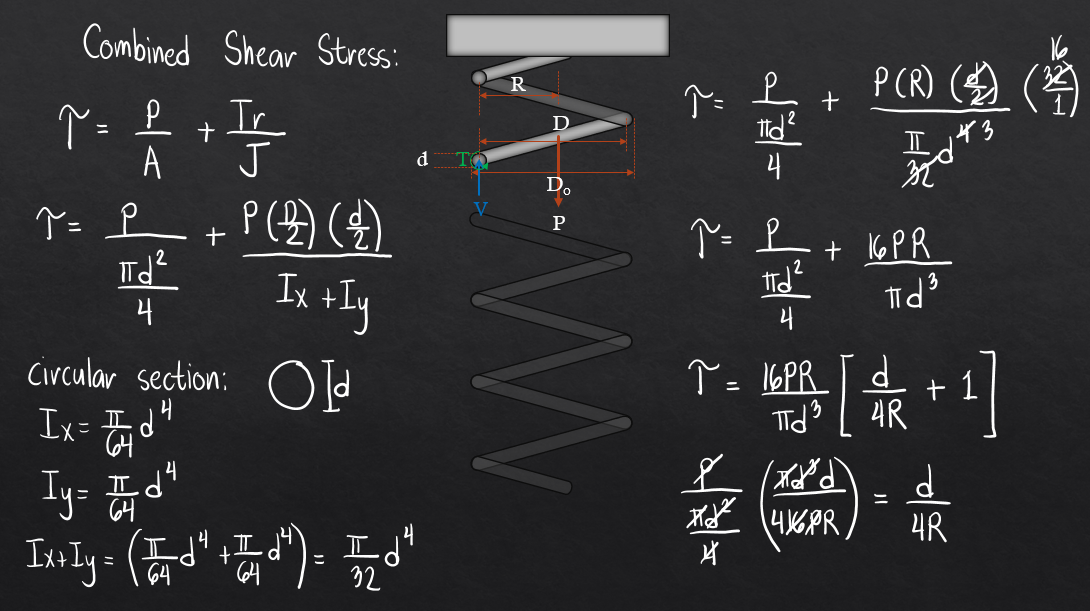 Combined Shear Stress:
τ = P/A + Tr/J
τ = P/(πd²/4) + P(D/2)(d/2)/(Ix + Iy)
circular section: d
Ix = π/64 d⁴
Iy = π/64 d⁴
Ix+Iy = (π/64 d⁴ + π/64 d⁴) = π/32 d⁴
R
D
d T
Do
V
P
16
τ = P/(πd²/4) + P(R)(d/2)(32/1)/(π/32 d⁴ ³)
τ = P/(πd²/4) + 16PR/πd³
τ = 16PR/πd³ [d/4R + 1]
P/(πd²/4) (πd³d/4 16PR) = d/4R